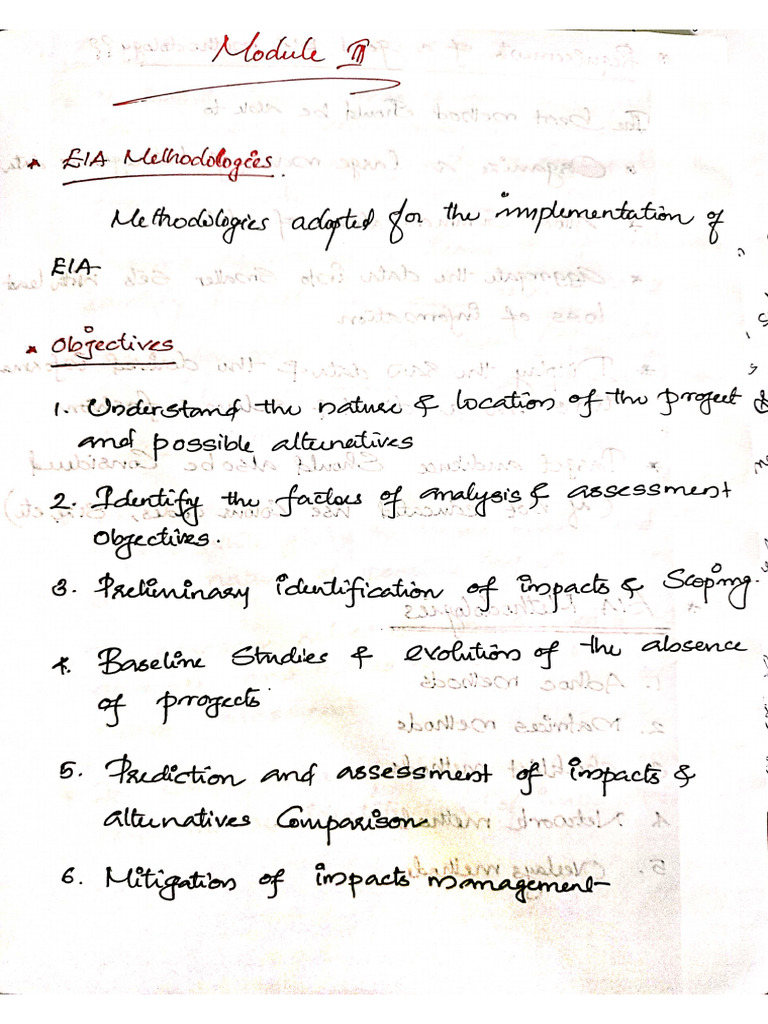 Module III
* EIA Methodologies.
Methodologies adopted for the implementation of
EIA
* Objectives
1. Understand the nature & location of the project &
and possible alternatives
2. Identify the factors of analysis & assessment
objectives.
3. Preliminary identification of impacts & Scoping.
4. Baseline Studies & evolution of the absence
of projects
5. Prediction and assessment of impacts &
alternatives Comparison
6. Mitigation of impacts management